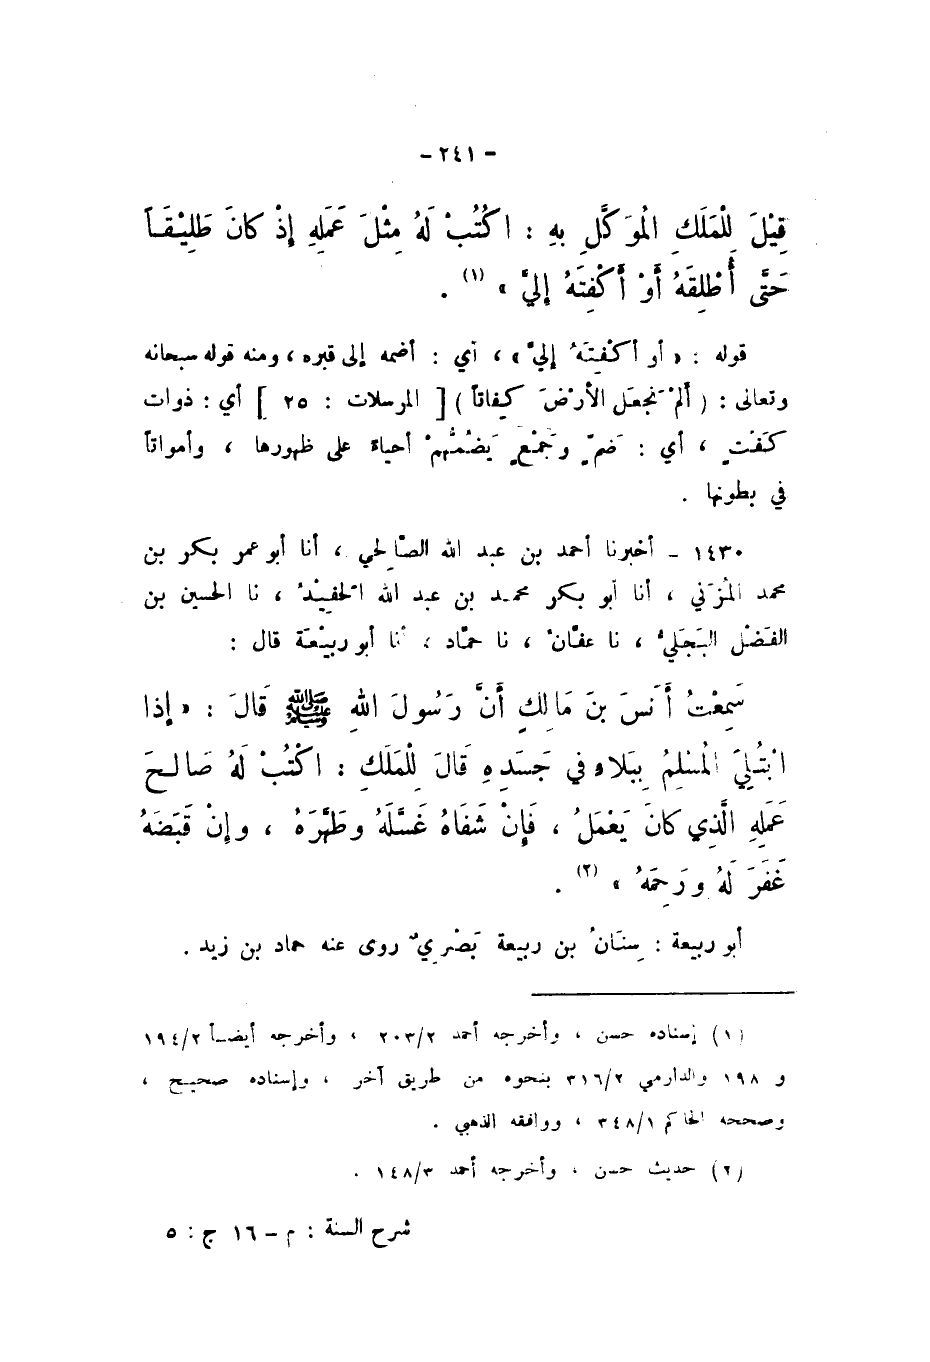 - ٢٤١ -
قِيْلَ لِلْمَلَكِ الْمُوَكَّلِ بِهِ : اكْتُبْ لَهُ مِثْلَ عَمَلِهِ إِذْ كانَ طَلِيْقَاً
حَتَّى أُطْلِقَهُ أَوْ أَكْفِتَهُ إِليَّ » (١) .
قوله : « أو أكْفِتَهُ إليَّ » ، أي : أضمه إلى قبره ، ومنه قوله سبحانه
وتعالى : ( أَلَمْ نَجعَلِ الأرْضَ كِفاتاً ) [ المرسلات : ٢٥ ] أي : ذوات
كَفْتٍ ، أي : ضَمٍّ وجَمْعٍ يَضُمُّهمْ أحياءً على ظهورها ، وأمواتاً
في بطونها .
١٤٣٠ - أخبرنا أحمد بن عبد الله الصَّالِحي ، أنا أبو عمر بكر بن
محمد المُزَني ، أنا أبو بكر محمد بن عبد الله الحَفِيْدُ ، نا الحسين بن
الفَضْل البَجَليُّ ، نا عفَّانُ ، نا حمَّاد ، أنا أبو ربيْعَة قال :
سَمِعْتُ أَنَسَ بنَ مَالِكٍ أَنَّ رَسُولَ اللهِ ﷺ قَالَ : « إذا
ابْتُلِيَ الْمُسْلِمُ بِبَلاءٍ في جَسَدِهِ قَالَ لِلْمَلَكِ : اكْتُبْ لَهُ صَالِحَ
عَمَلِهِ الَّذِي كانَ يَعْمَلُ ، فَإِنْ شَفَاهُ غَسَّلَهُ وطَهَّرَهُ ، وإِنْ قَبَضَهُ
غَفَرَ لَهُ ورَحِمَهُ » (٢) .
أبو ربيعة : سِنَانُ بن ربيعة بَصْرِيٌّ روى عنه حماد بن زيد .
(١) إسناده حسن ، وأخرجه أحمد ٢٠٣/٢ ، وأخرجه أيضاً ١٩٤/٢
و ١٩٨ والدارمي ٣١٦/٢ بنحوه من طريق آخر ، وإسناده صحيح ،
وصححه الحاكم ٣٤٨/١ ، ووافقه الذهبي .
(٢) حديث حسن ، وأخرجه أحمد ١٤٨/٣ .
شرح السنة : م - ١٦ ج : ٥